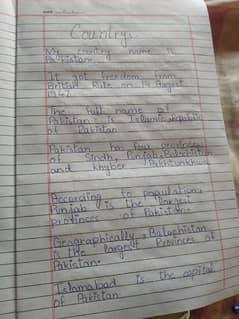 Country:
My country name is
Pakistan.
It got freedom from
British Rule on 14 August
1947
The full name of
Pakistan is Islamic republic
of Pakistan
Pakistan has four provinces
of Sindh, Punjab, Balochistan
and khyber Pakhtunkhwa
According to population,
Punjab is the largest
provinces of Pakistan.
Geographically, Balaphistan
is the largest Provinces of
Pakistan.
Islamabad is the capital
of Pakistan